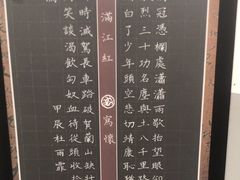 冠憑欄處瀟瀟雨歇抬望眼
烈三十功名塵與土八千里路
白了少年頭空悲切靖康恥
滿江紅
寫懷
時滅駕長車踏破賀蘭山缺壯
笑談渴飲匈奴血待從頭收拾
甲辰杜雨霏